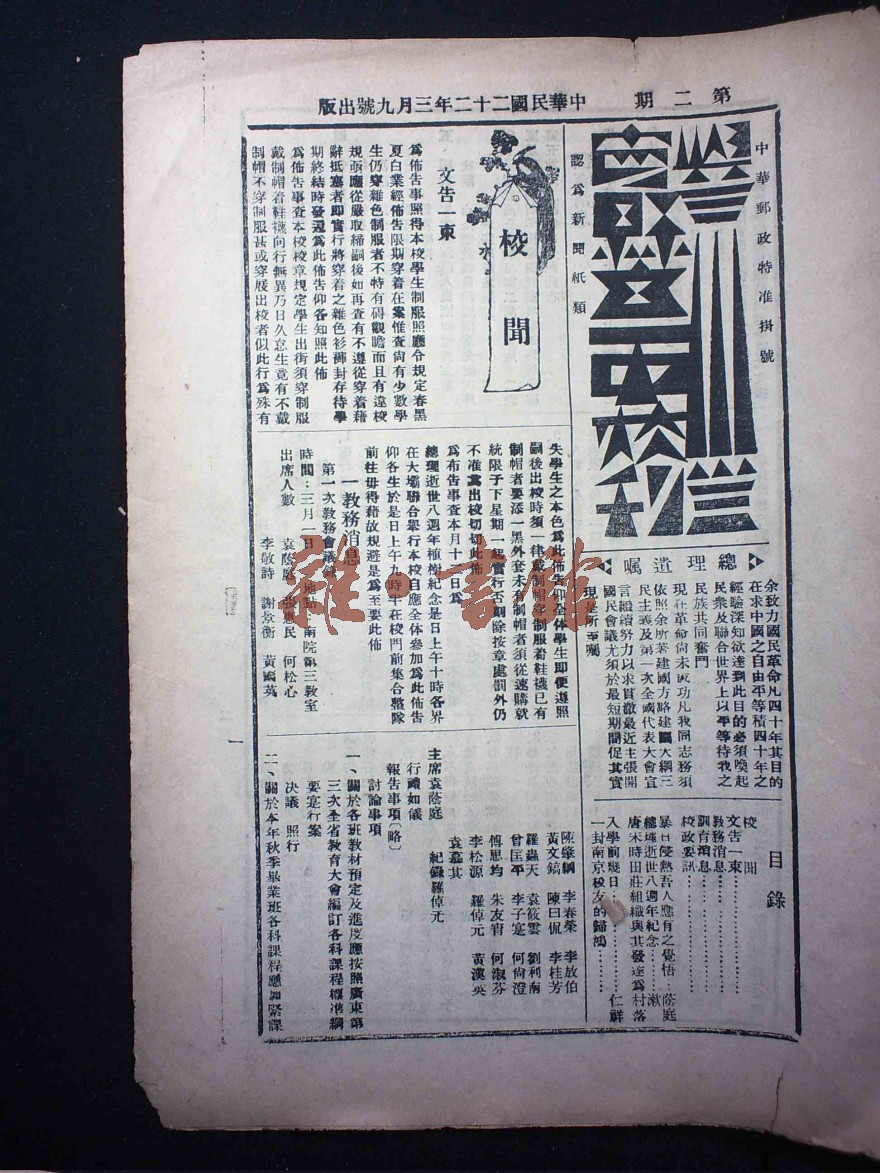 第二期 中華民國二十二年三月九號出版
中華郵政特准掛號
認爲新聞紙類
總理遺囑
余致力國民革命凡四十年其目的
在求中國之自由平等積四十年之
經驗深知欲達到此目的必須喚起
民衆及聯合世界上以平等待我之
民族共同奮鬥
現在革命尙未成功凡我同志務須
依照余所著建國方略建國大綱三
民主義及第一次全國代表大會宣
言繼續努力以求貫徹最近主張開
國民會議尤須於最短期間促其實
現是所至囑
目錄
校聞
文告一束
敎務消息
訓育消息
校政要訊
暴日侵熱吾人應有之覺悟 蔭庭
總理逝世八週年紀念 漱
唐宋時田莊組織與其發達爲村落
入學前幾日 仁祥
一封南京校友的歸鴻
校聞
文告一束
爲佈告事照得本校學生制服照廳令規定春黑
夏白業經佈告限期穿着在案惟查尙有少數學
生仍穿雜色制服者不特有碍觀瞻而且有違校
規亟應從嚴取締嗣後如再查有不遵從穿着藉
辭抵塞者即實行將穿着之雜色衫褲封存待學
期終結時發還爲此佈告仰各知照此佈
爲佈告事查本校校章規定學生出街須穿制服
戴制帽着鞋襪向行無異乃日久怠生竟有不戴
制帽不穿制服甚或穿屐出校者似此行爲殊有
失學生之本色爲此佈告仰全体學生即便遵照
嗣後出校時須一律戴制帽穿制服着鞋襪已有
制帽者要添一黑外套未有制帽者須從速購就
統限于下星期一起實行否則除按章處罰外仍
不准其出校切切此佈
爲布告事查本月十二日爲
總理逝世八週年植樹紀念是日上午十時各界
在大壩聯合舉行本校自應全体參加爲此佈告
仰各生於是日上午九時半在校門前集合整隊
前往毋得藉故規避是爲至要此佈
敎務消息
第一次敎務會議錄
時間：三月一日 地點：南院第三敎室
出席人數 袁蔭庭 張惠民 何松心
李敬詩 謝景衡 黃國英
陳肇綱 李春榮 李放伯
黃文鎬 陳曰侃 李桂芳
羅蟲天 袁筱雲 劉利南
曾匡平 李子寔 何尙澄
傅思均 朱友宵 何淑芬
李松源 羅倬元 黃漢英
袁嘉其
主席袁蔭庭 紀錄羅倬元
行禮如儀
報告事項（略）
討論事項
一、關於各班敎材預定及進度應按照廣東第
三次全省敎育大會編訂各科課程標準綱
要寔行案
決議 照行
二、關於本年秋季畢業班各科課程應加緊課
一
雜·書館